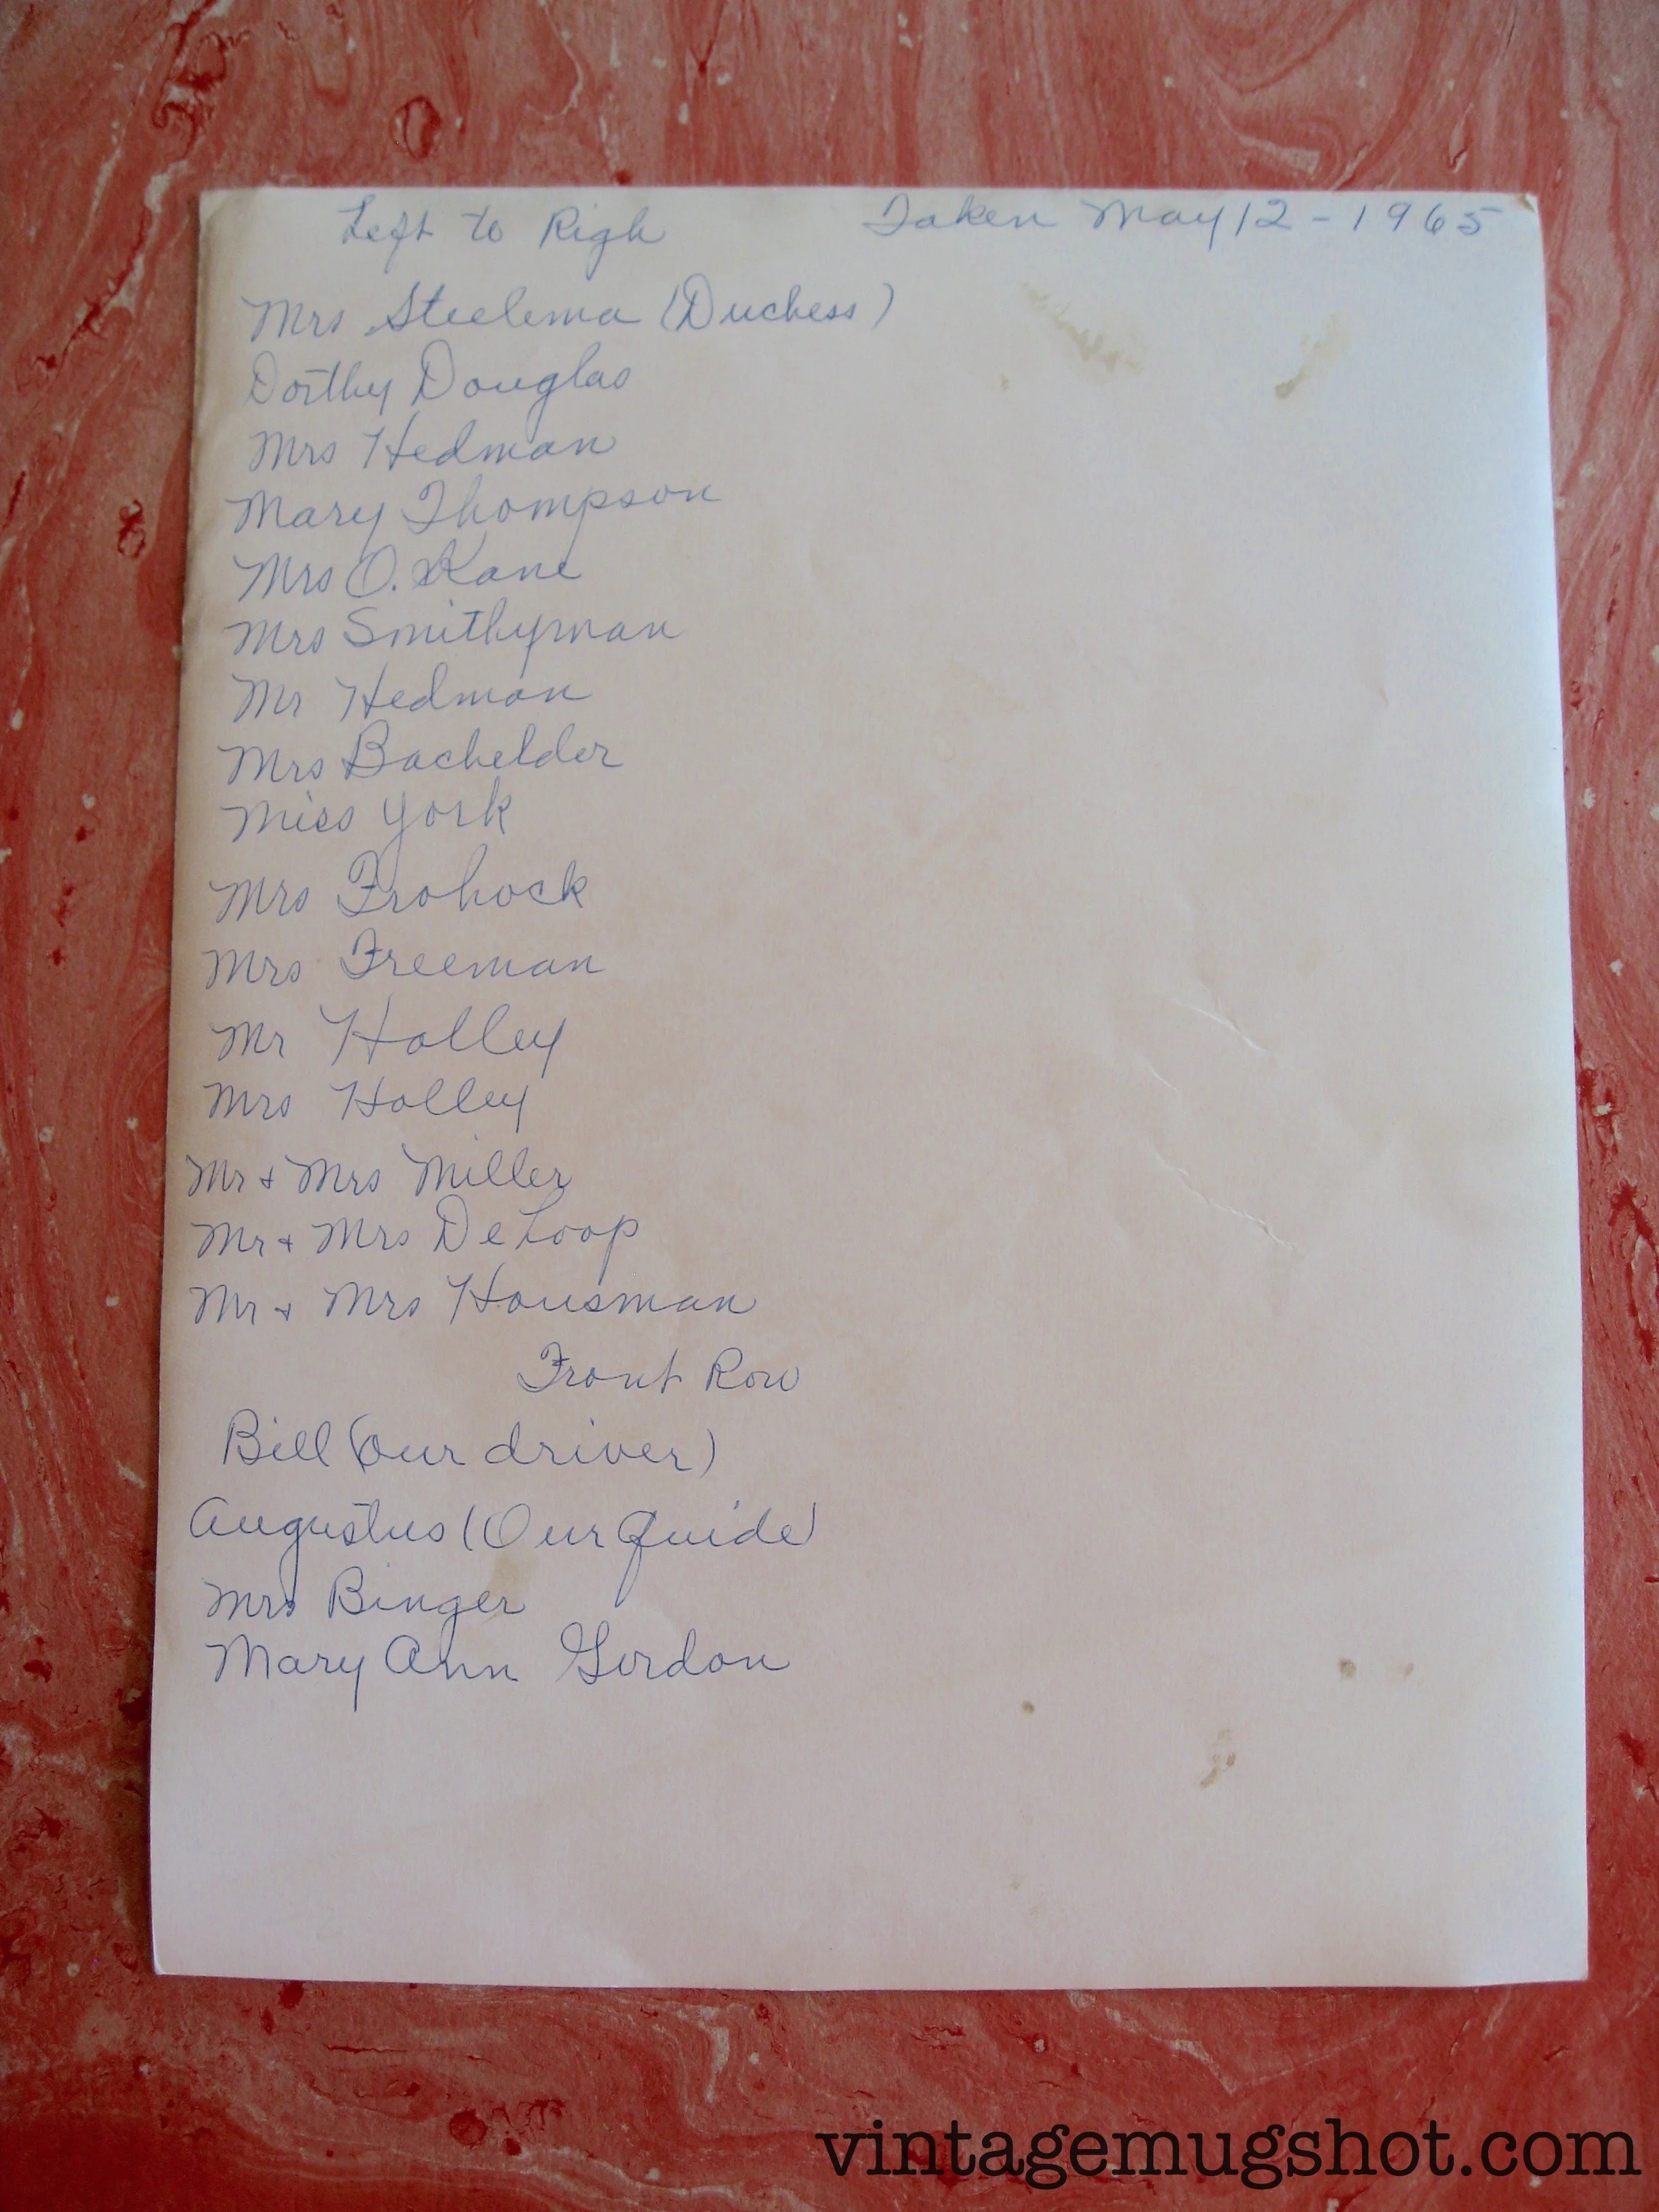 Left to Righ Taken May 12 - 1965
Mrs Steelema (Duchess)
Dorthy Douglas
Mrs Hedman
Mary Thompson
Mrs O. Kane
Mrs Smithyman
Mr Hedman
Mrs Bachelder
Miss York
Mrs Frohock
Mrs Freeman
Mr Holley
Mrs Holley
Mr + Mrs Miller
Mr + Mrs DeLoop
Mr + Mrs Housman
Front Row
Bill (our driver)
Augustus (Our Guide)
Mrs Binger
Mary Ann Gordon
vintagemugshot.com